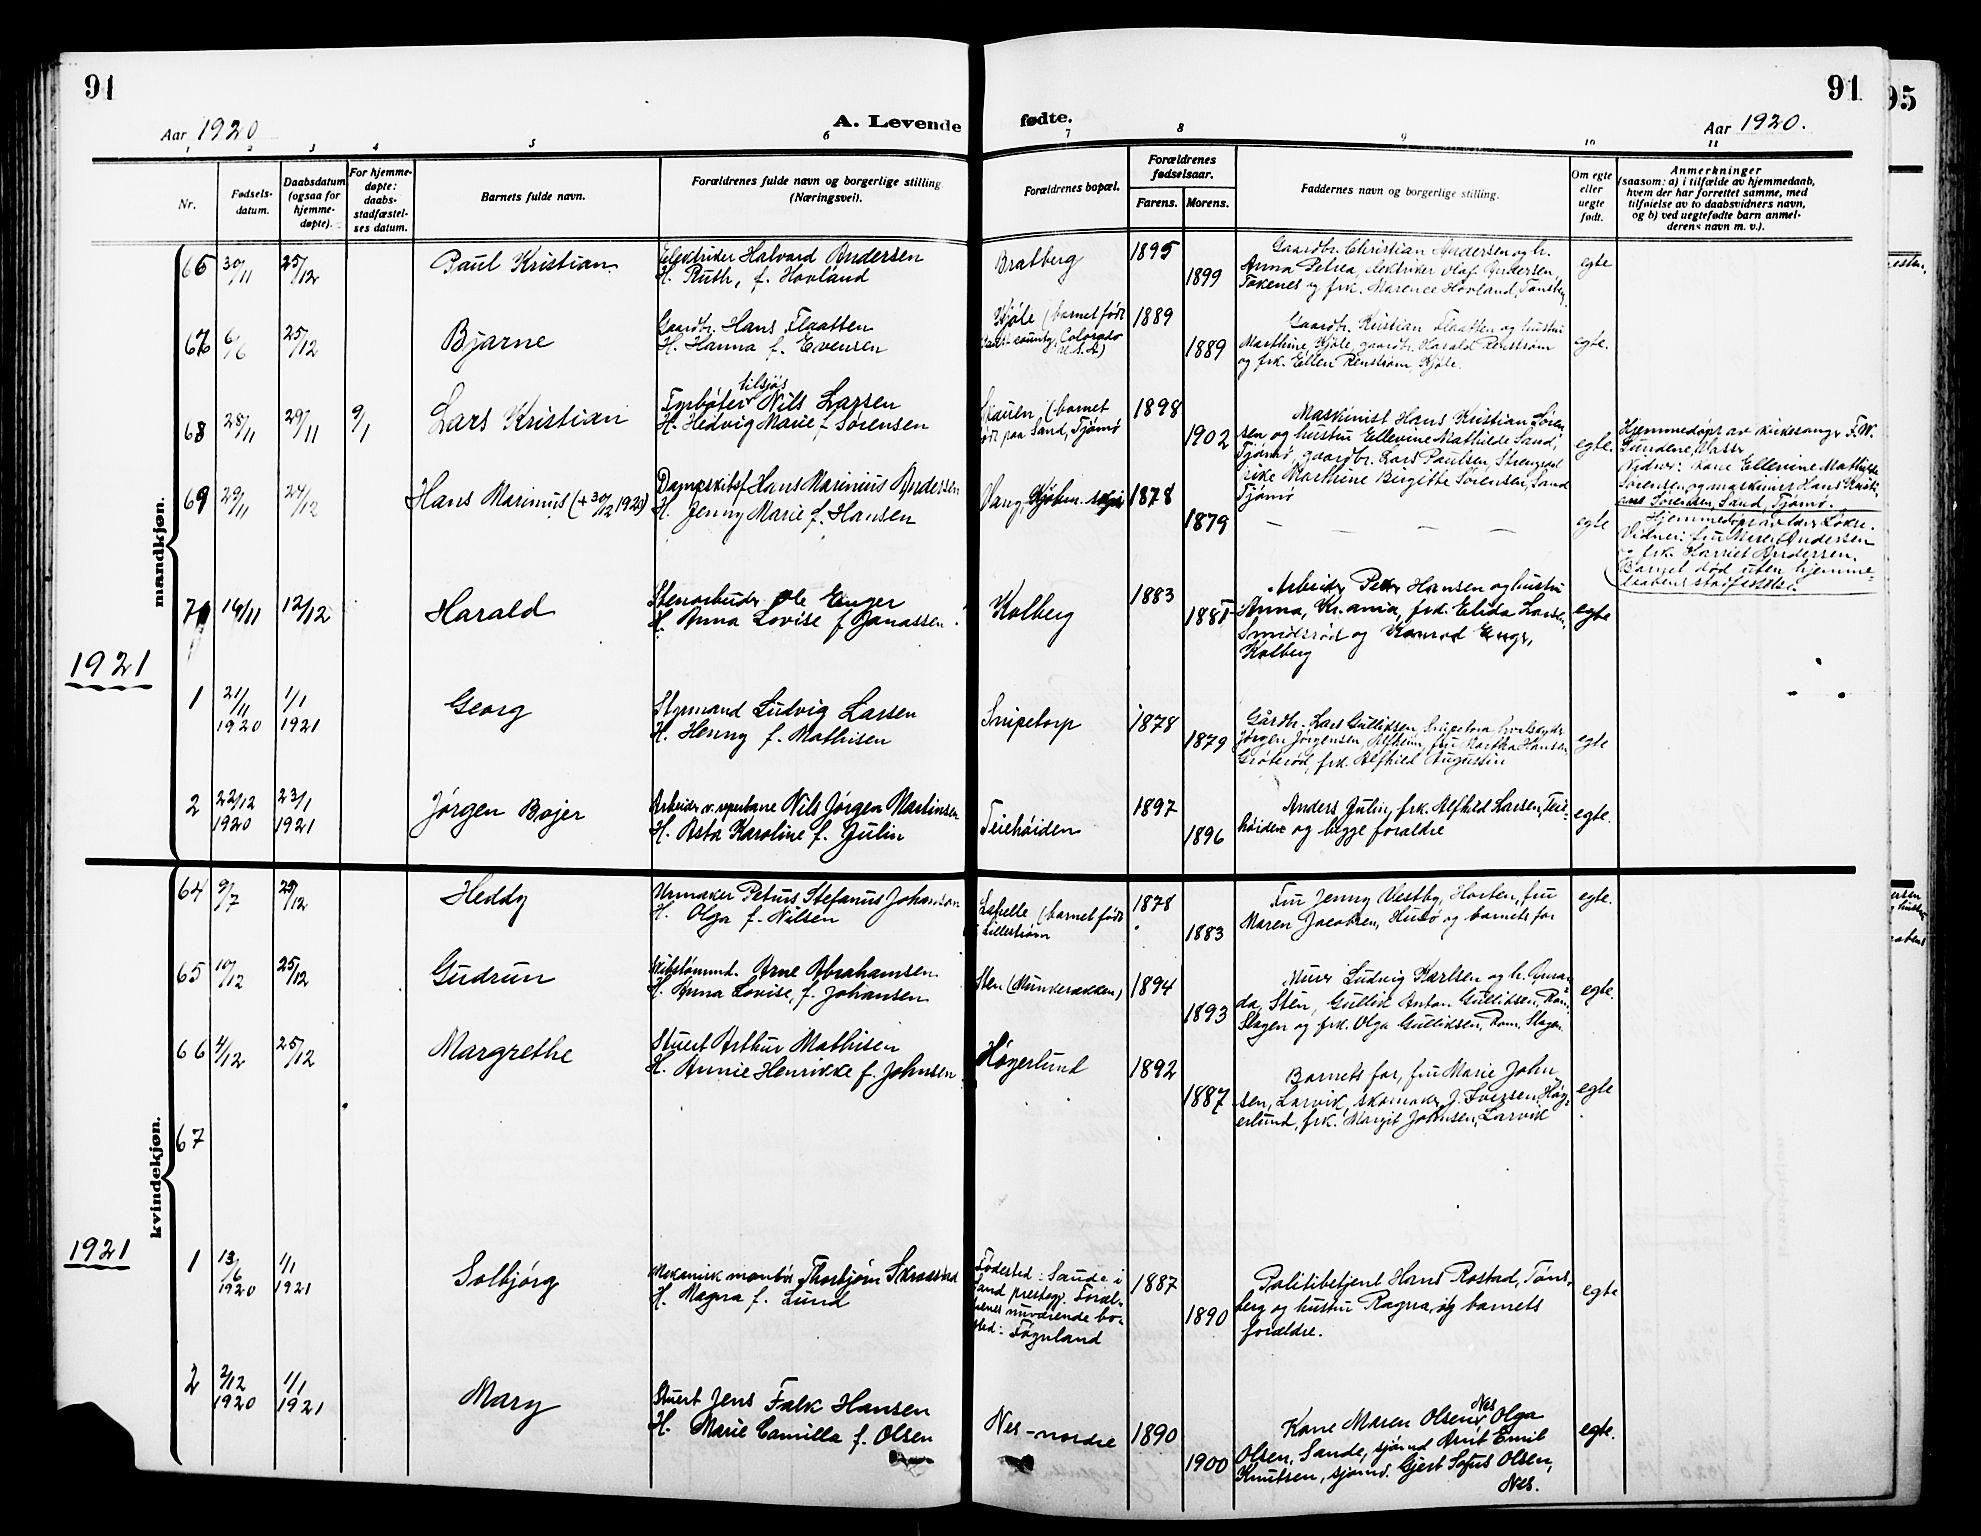 91
91
95
Aar 1920
A. Levende
fødte.
Aar 1920.
1 2 3 4 5 6 7 8 9 10 11
Nr.
Fødsels-
datum.
Daabsdatum
(ogsaa for
hjemme-
døpte).
For hjemme-
døpte:
daabs-
stadfæstel-
ses datum.
Barnets fulde navn.
Forældrenes fulde navn og borgerlige stilling
(Næringsvei).
Forældrenes bopæl.
Forældrenes
fødselsaar.
Farens. Morens.
Faddernes navn og borgerlige stilling.
Om egte
eller
uegte
født.
Anmerkninger
(saasom: a) i tilfælde av hjemmedaab,
hvem der har forrettet samme, med
tilføielse av to daabsvidners navn,
og b) ved uegtefødte barn anmel-
derens navn m. v.).
mandkjøn.
66 30/11 25/12 Paul Kristian
Elektriker Halvard Andersen
H. Ruth, f. Hovland
Bratberg 1895 1899
Gaardbr. Christian Andersen og h.
Anna Petrea, elektriker Olaf Andersen,
Tokenes og frk. Marence Hovland, Tønsbg.
egte
67 6/6 25/12 Bjarne
Gaardbr. Hans Flaatten
H. Hanna f. Evensen
Kjøle (barnet født
county, Colorado
U.S.A)
1889 1889
Gaardbr. Kristian Flaatten og hustru
Marthine Kjøle, gaardbr. Harald Renstrøm
og frk. Ellen Renstrøm, Kjøle.
egte.
68 28/11 29/11 9/1 Lars Kristian
tilsjøs
Fyrbøter Nils Larsen
H. Hedvig Marie f. Sørensen
Skauen, (barnet
født paa Sand, Tjømø
1898 1902
Maskinist Hans Kristian Søren
sen og hustru Ellevine Mathilde Sand,
Tjømø, gaardbr. Lars Paulsen,
Marthine Birgitte Sørensen, Sand
Tjømø
egte.
Hjemmedøpt av kirkesanger F.W.
Vidner: kone Ellevine Mathilde
Sørensen og maskinist Hans Kristi-
an Sørensen, Sand, Tjømø.
69 29/11 24/12 Hans Marinius (+ 30/12 1920)
Dampskibsf. Hans Marinius Andersen
H. Jenny Marie f. Hansen
Vang 1878 1879
— — — —
egte
Hjemmedøpt av
Vidner: fru Maren Andersen
og frk. Harriet Andersen.
Barnet død uten hjemme-
daabens stadfestelse.
70 14/11 12/12 Harald
Stenarbeider Ole Enger
H. Anna Lovise f. Jonassen.
Kolberg 1883 1881
Arbeider Peder Hansen og hustru
Anna, Kr.ania, frk. Elida Larsen,
Smidsrød og Konrad Enger,
Kolberg
egte
1921
1 21/11 1920 1/1 1921 Georg
Styrmand Ludvig Larsen
H. Henny f. Mathisen
Snipetorp 1878 1879
Gårdbr. Lars Gulliksen Snipetorp,
Jørgen Jørgensen, Alfheim, fru Martha Hansen,
Grøterød, frk. Alfhild Augustin
egte
2 22/12 1920 23/1 1921 Jørgen Bojer
Arbeider v. sporbane Nils Jørgen Martinsen
H. Asta Karoline f. Julin
Teiehøiden 1897 1896
Anders Julin, frk. Alfhild Larsen, Teie-
høiden og begge forældre
egte.
kvindekjøn.
64 9/7 25/12 Heddy
Urmaker Petrus Stefanus Johanson
H. Olga f. Nilsen
Labelle (barnet født
i Lillestrøm
1878 1883
Fru Jenny Vestby, Horten, fru
Maren Jacobsen, Husø og barnets far
egte.
65 10/12 25/12 Gudrun
Skibstømmd. Arne Abrahamsen
H. Anna Lovise, f. Johansen
Sten (Munkerækken) 1894 1893
Murer Ludvig Karlsen og h. Aman-
da, Sten, Gullik Anton Gulliksen, Rom,
Slagen og frk. Olga Gulliksen, Rom, Slagen
egte.
66 4/12 25/12 Margrethe
Stuert Arthur Mathisen
H. Annie Henrikke f. Johnsen
Høgerlund 1892 1887
Barnets far, fru Marie John
sen, Larvik, skomaker J. Iversen, Høg-
erlund, frk. Margit Johnsen, Larvik
egte.
67
1921
1 13/6 1920 1/1 1921 Solbjørg
Mekanisk montør Thorbjørn Skrastad
H. Magna f. Lund
Fødested: Saude i
Sand prestegj. Foræl-
drenes nuværende bo-
sted: Føynland
1887 1890
Politibetjent Hans Rostad, Tøns-
berg og hustru Ragna, og barnets
forældre.
egte
2 2/12 1920 1/1 1921 Mary
Stuert Jens Falk Hansen
H. Marie Camilla f. Olsen
Nes-nordre 1890 1900
Kone Maren Olsen, Nes, Olga
Olsen, Sande, sjømd Arnt Emil
Knutsen, sjømd. Gjert Sofus Olsen,
Nes.
egte.